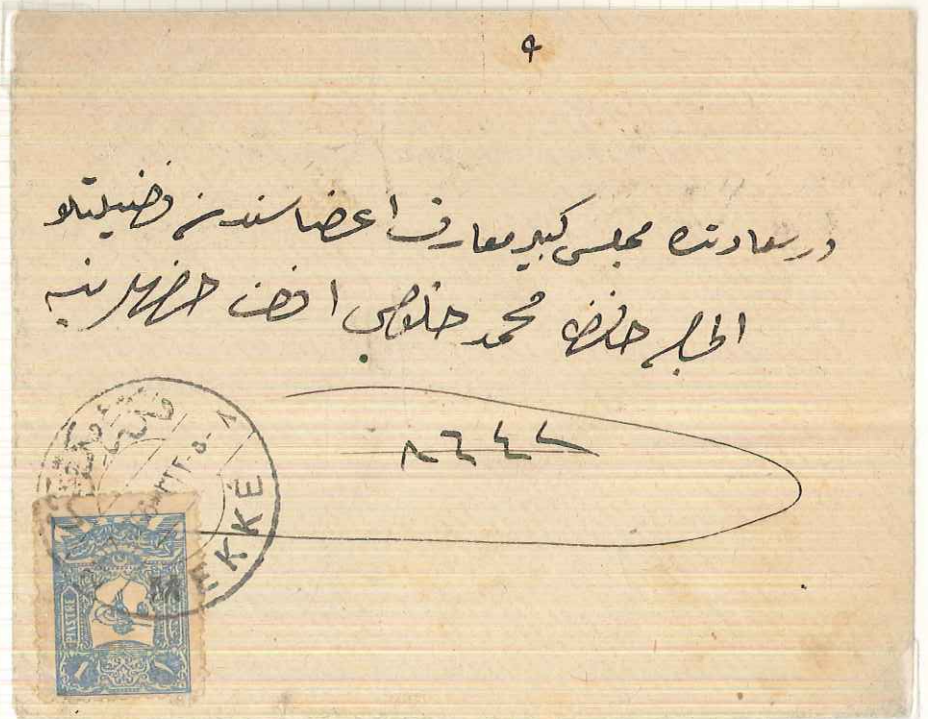 ٩
درسعادتده مجلس كبير معارف اعضاسندن فضيلتلو
الحاج حافظ محمد خلوصى افندى حضرتلرينه
٨٦٤٢
MEKKÉ
PIASTRE
١ ١